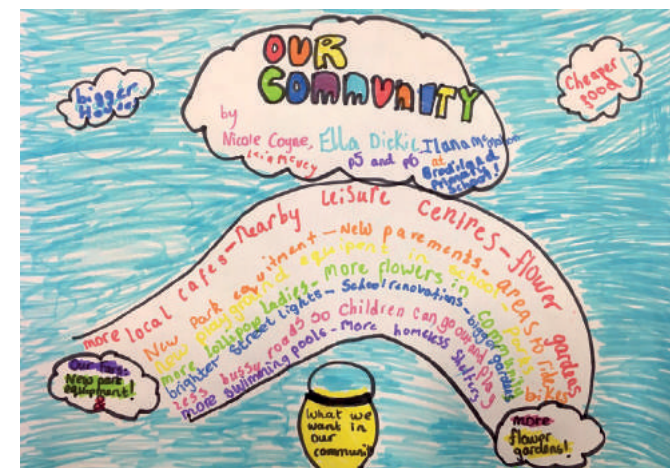 OUR
COMMUNITY
by
Nicole Coyne, Ella Dickie, Ilana
p5 and p6 at
Primary
School!
bigger
Houses
Cheaper
food!
more local cafes - Nearby Leisure Centres - flower gardens
New Park equitment - New pavements - areas to ride bikes
New playground equipent in school
more lollipop ladies - more flowers in community parks
brighter street lights - School renovations - bigger gardens
Less bussy roads so Children Can go out and play
more swimming pools - More homeless Shelters
Our
New park
equipment!
&
What we
want in
our
communit
more
flower
gardens!